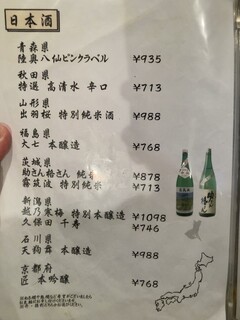 日本酒
青森県
陸奥八仙ピンクラベル ¥935
秋田県
特選 高清水 辛口 ¥713
山形県
出羽桜 特別純米酒 ¥988
福島県
大七 本醸造 ¥768
茨城県
助さん格さん 純米 ¥878
霧筑波 特別純米 ¥713
新潟県
越乃寒梅 特別本醸造 ¥1098
久保田 千寿 ¥746
石川県
天狗舞 本醸造 ¥988
京都府
匠 本吟醸 ¥768